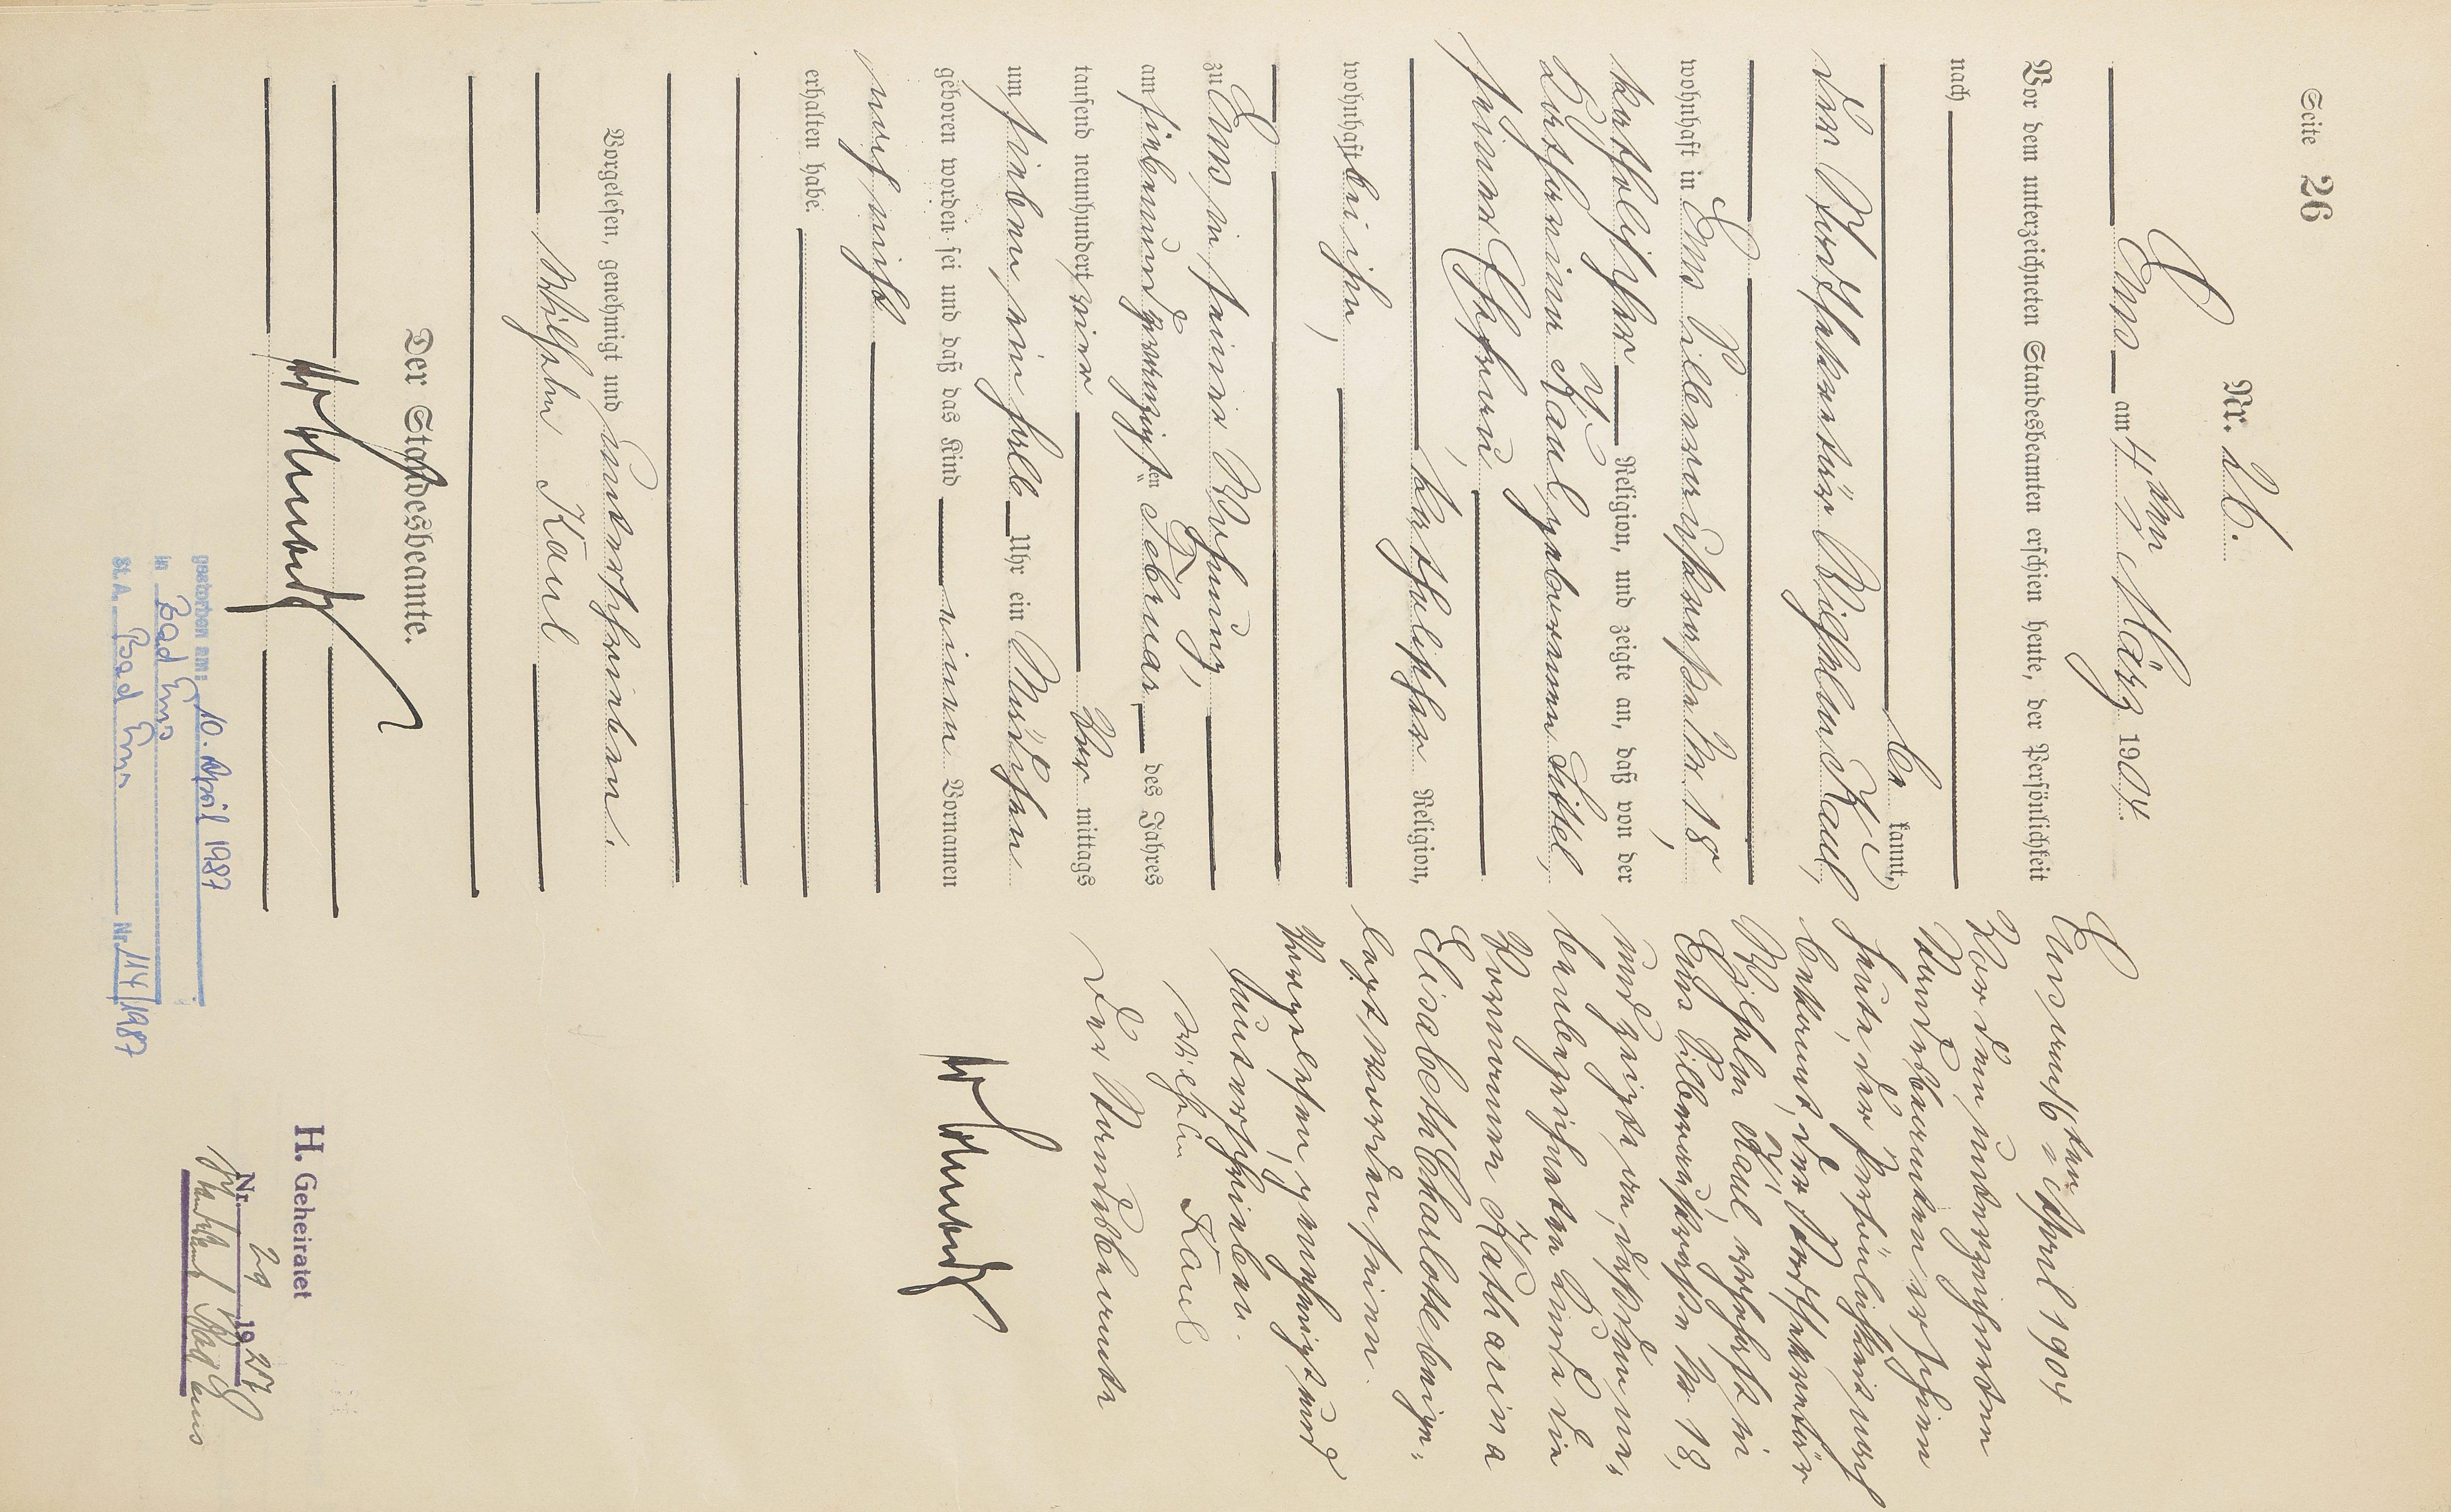 Seite 26
Nr. 26.
Ems am 4ten März 1904.
Vor dem unterzeichneten Standesbeamten erschien heute, der Persönlichkeit
nach
be kannt,
der Stadtsekretär Wilhelm Kaul,
wohnhaft in Ems, Silberaustraße Nr. 18,
katholischer Religion, und zeigte an, daß von der
Katharina Kaul geborenen Sittel,
seiner Ehefrau,
katholischer Religion,
wohnhaft bei ihm,
zu Ems in seiner Wohnung,
am siebenundzwanzigsten Februar des Jahres
tausend neunhundert vier Vor mittags
um sieben ein halb Uhr ein Mädchen
geboren worden sei und daß das Kind einen Vornamen
noch nicht
erhalten habe.
Vorgelesen, genehmigt und unterschrieben.
Wilhelm Kaul
Der Standesbeamte.
gestorben am: 10. April 1987
in Bad Ems
St. A. Bad Ems Nr. 114/1987
Ems am 16ten April 1904
Vor dem unterzeichneten
Standesbeamten erschien
heute, der Persönlichkeit nach
bekannt, der Stadtsekretär
Wilhelm Kaul, wohnhaft in
Ems, Silberaustraße Nr. 18,
und zeigte an, daß dem ne-
benbezeichneten Kinde die
Vornamen Katharina
Elisabeth Charlotte beige-
legt worden seien.
Vorgelesen, genehmigt und
unterschrieben.
Wilhelm Kaul
Der Standesbeamte
H. Geheiratet
Nr. 29 1927
Standesamt Bad Ems